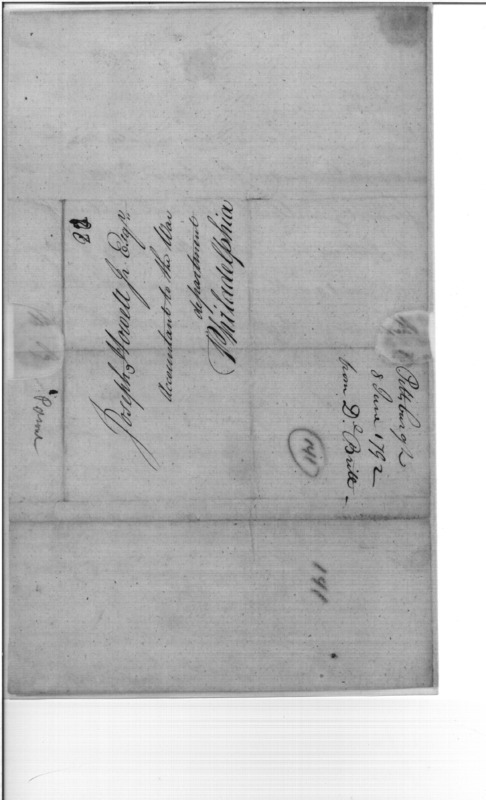 22
Joseph Howell Jr. Esqr.
Accountant to the War
department
Philadelphia
Pittsburgh
8 June 1792
from Dd. Britt
141
141